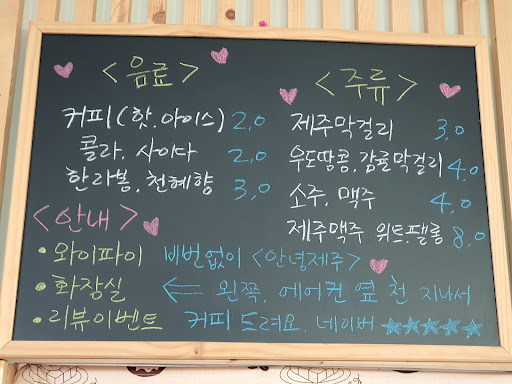 <음료>
커피(핫.아이스) 2,0
콜라, 사이다 2,0
한라봉, 천혜향 3,0
<주류>
제주막걸리 3,0
우도땅콩,감귤막걸리 4,0
소주, 맥주 4,0
제주맥주 위트,펠롱 8,0
<안내>
• 와이파이 비번없이 <안녕제주>
• 화장실 ← 왼쪽, 에어컨 옆 천 지나서
• 리뷰이벤트 커피 드려요. 네이버 ★★★★★